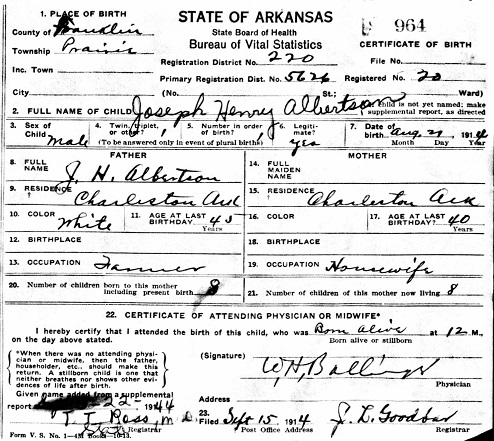 1. PLACE OF BIRTH
STATE OF ARKANSAS
964
County of Franklin
State Board of Health
Township Prairie
Bureau of Vital Statistics
CERTIFICATE OF BIRTH
Registration District No. 220
File No.
Inc. Town
Primary Registration Dist. No. 5626
Registered No. 20
City (No. St.; Ward)
2. FULL NAME OF CHILD Joseph Henry Albertson
child is not yet named; make supplemental report, as directed
3. Sex of Child Male
4. Twin, triplet, or other?
5. Number in order of birth?
(To be answered only in event of plural births)
6. Legitimate? yes
7. Date of birth Aug. 1914
Month Day Year
FATHER
MOTHER
8. FULL NAME J. H. Albertson
14. FULL MAIDEN NAME
9. RESIDENCE Charleston Ark
15. RESIDENCE Charleston Ark
10. COLOR White
11. AGE AT LAST BIRTHDAY 45 Years
16. COLOR
17. AGE AT LAST BIRTHDAY 40 Years
12. BIRTHPLACE
18. BIRTHPLACE
13. OCCUPATION Farmer
19. OCCUPATION Housewife
20. Number of children born to this mother including present birth 8
21. Number of children of this mother now living 8
22. CERTIFICATE OF ATTENDING PHYSICIAN OR MIDWIFE*
I hereby certify that I attended the birth of this child, who was Born Alive at 12 M.,
on the day above stated.
Born alive or stillborn
*When there was no attending physician or midwife, then the father, householder, etc., should make this return. A stillborn child is one that neither breathes nor shows other evidences of life after birth.
(Signature) W. H. Bollinger
Physician
Given name added from a supplemental
report 22- 1944
Address
T. T. Ross, m. d.
State Registrar
23. Filed Sept 15 1914 J. D. Goodbar
Post Office Address Registrar
Form V. S. No. 1—4M Books—10-13.